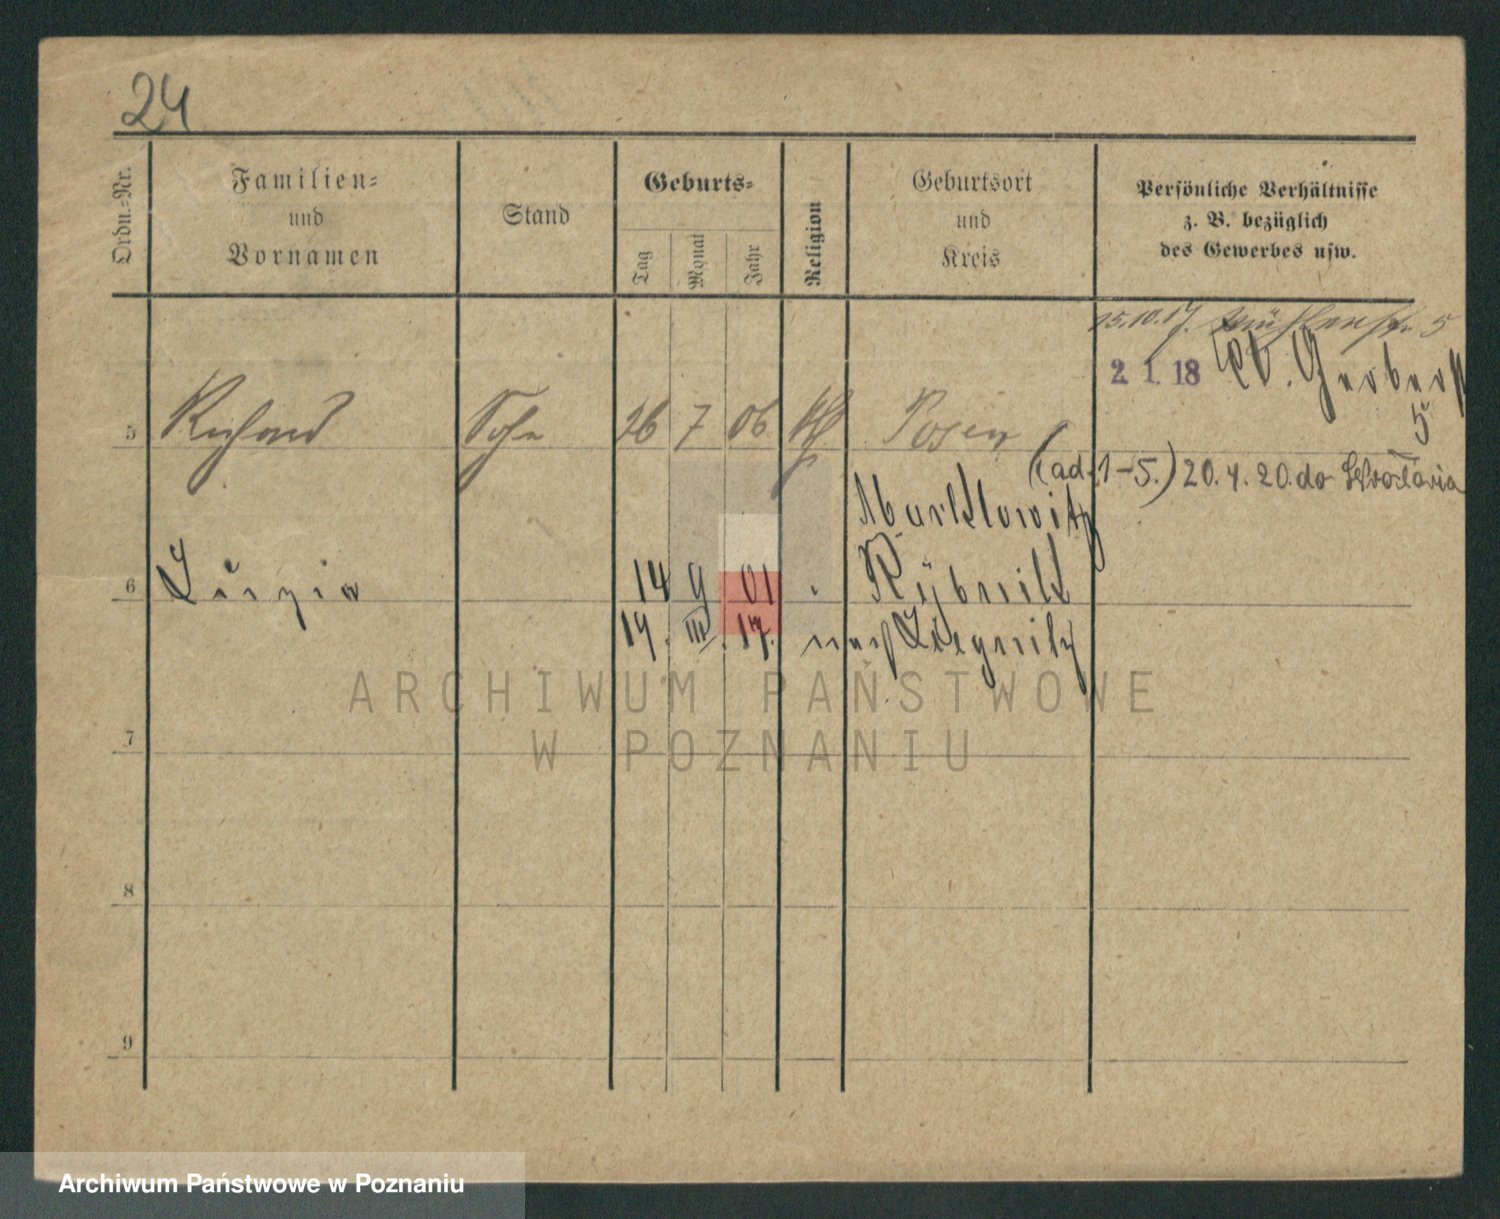 24
Ordn.-Nr.
Familien-
und
Vornamen
Stand
Geburts-
Tag
Monat
Jahr
Religion
Geburtsort
und
Kreis
Persönliche Verhältnisse
z. B. bezüglich
des Gewerbes usw.
15.10.17. Mühlenstr. 5
2. 1. 18 W. Gerberst
5
5 Richard Sohn 26 7 06 kth Posen
(ad. 1-5.) 20. 4. 20. do Wrocławia
Marklowitz
6 14 9 01 Rybnik
19. III. 17. nach Liegnitz
7
8
9
ARCHIWUM PAŃSTWOWE
W POZNANIU
Archiwum Państwowe w Poznaniu